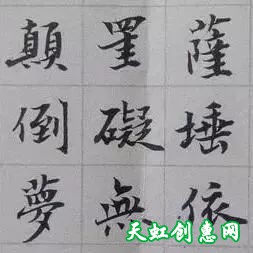 薩埵依
罣礙無
顛倒夢
天虹创惠网